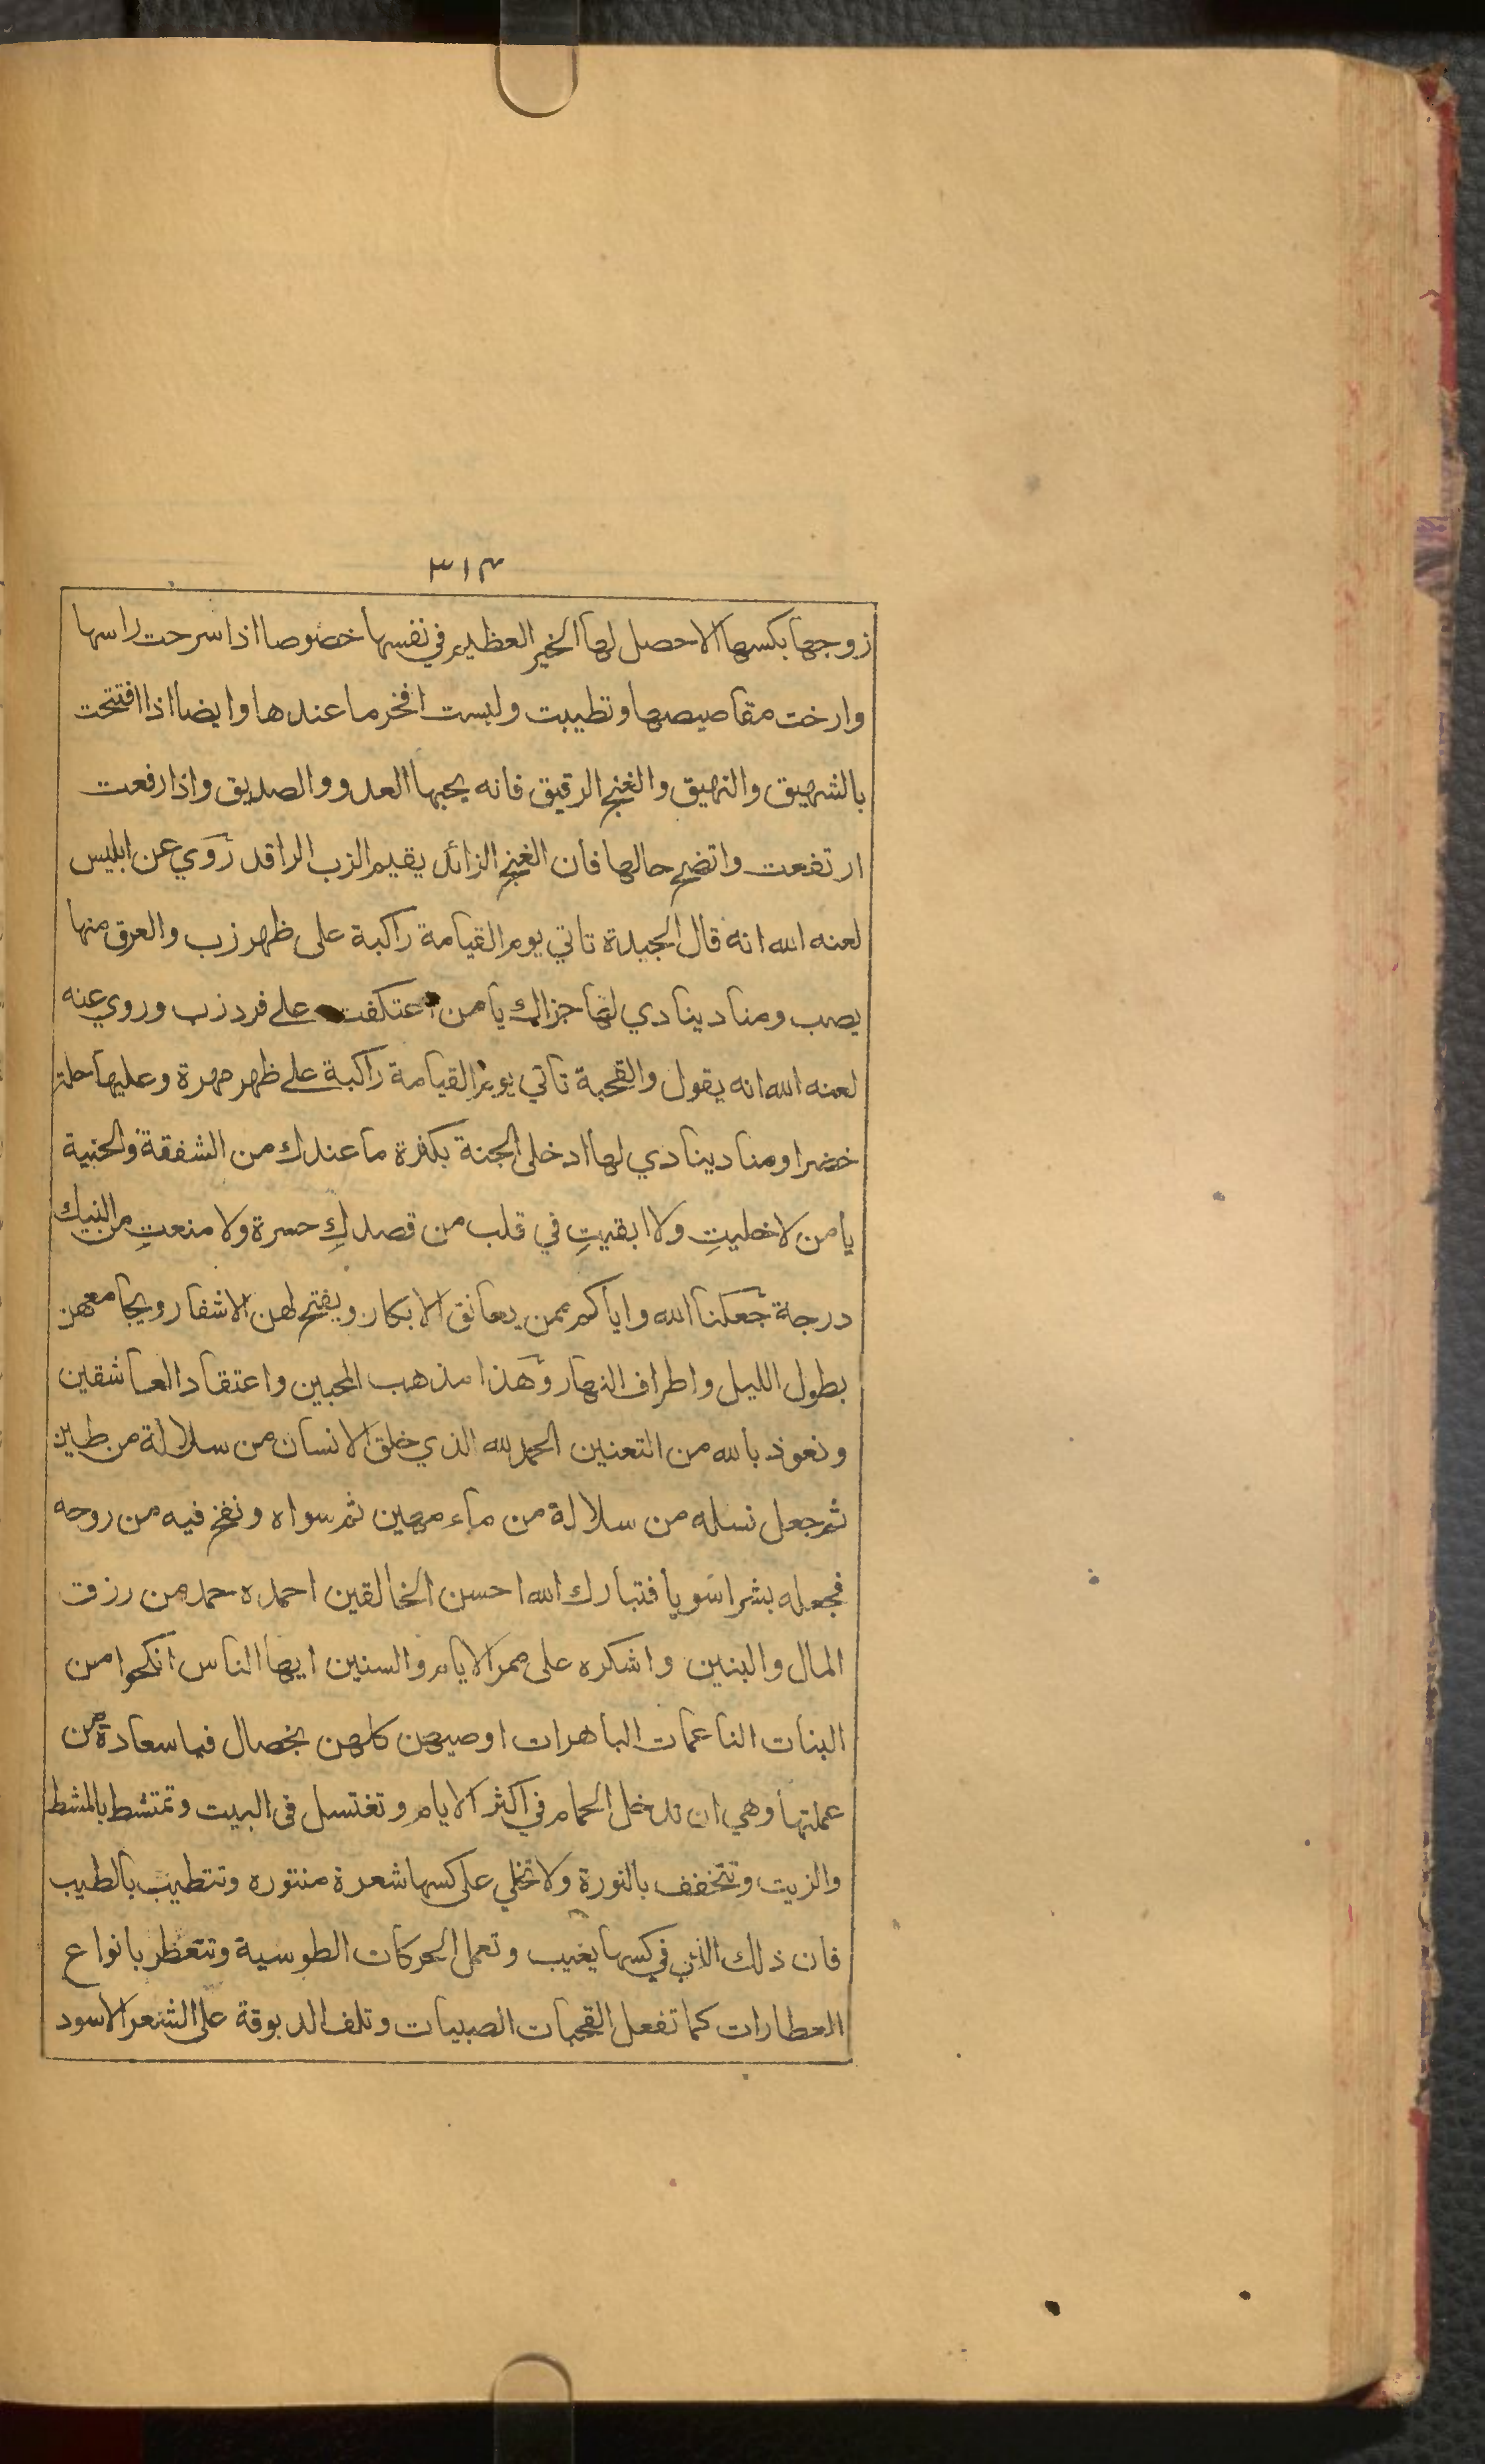 ٣١٣
زوجها بكسها الا حصل لها الخير العظيم في نفسها خصوصا اذا سرحت راسها
وارخت مقاصيصها وتطيبت ولبست افخر ما عندها وايضا اذا افتتحت
بالشهيق والنهيق والغنج الرقيق فانه يحبها العدو والصديق واذا رفعت
ارتفعت واتضح حالها فان الغنج الزائد يقيم الزب الراقد روي عن ابليس
لعنه الله انه قال الجيدة تاتي يوم القيامة راكبة على ظهر زب والعرق منها
يصب ومناد ينادي لها جزاك يا من اعتكفت على فرد زب وروي عنه
لعنه الله انه يقول والقحبة تاتي يوم القيامة راكبة على ظهر مهرة وعليها حلة
خضرا ومناد ينادي لها ادخلي الجنة بكفرة ما عندك من الشفقة والحنية
يا من لا خليتِ ولا ابقيتِ في قلب من قصدكِ حسرة ولا منعتِ من النيك
درجة جعلنا الله واياكم ممن يعانق الابكار ويفتح لهن الاشفار ويجامعهن
بطول الليل واطراف النهار وهذا مذهب المحبين واعتقاد العاشقين
ونعوذ بالله من التعنين الحمد لله الذي خلق الانسان من سلالة من طين
ثم جعل نسله من سلالة من ماء مهين ثم سواه ونفخ فيه من روحه
فجعله بشرا سويا فتبارك الله احسن الخالقين احمده حمد من رزق
المال والبنين واشكره على ممر الايام والسنين ايها الناس انكحوا من
البنات الناعمات الباهرات اوصيهن كلهن بخصال فيا سعادة من
عملتها وهي ان تدخل الحمام في اكثر الايام وتغتسل في البيت وتمتشط بالمشط
والزيت وتتخفف بالنورة ولا تخلي على كسها شعرة منتوره وتتطيب بالطيب
فان ذلك الذي في كسها يغيب وتعمل الحركات الطوسية وتتعطر بانواع
العطارات كما تفعل القحبات الصبيات وتلف الدبوقة على الشعر الاسود